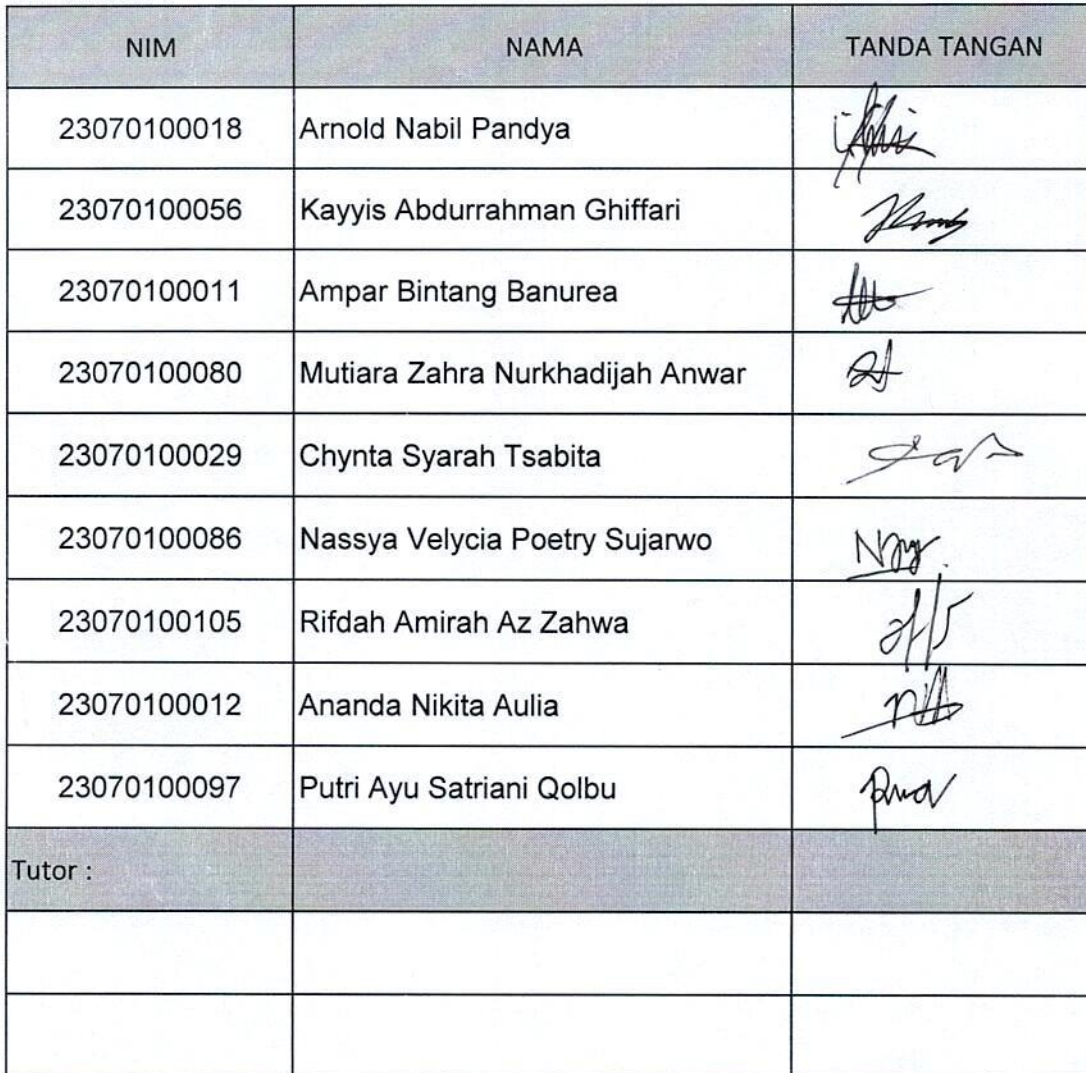 NIM NAMA TANDA TANGAN
23070100018 Arnold Nabil Pandya
23070100056 Kayyis Abdurrahman Ghiffari
23070100011 Ampar Bintang Banurea
23070100080 Mutiara Zahra Nurkhadijah Anwar
23070100029 Chynta Syarah Tsabita
23070100086 Nassya Velycia Poetry Sujarwo
23070100105 Rifdah Amirah Az Zahwa
23070100012 Ananda Nikita Aulia
23070100097 Putri Ayu Satriani Qolbu
Tutor :